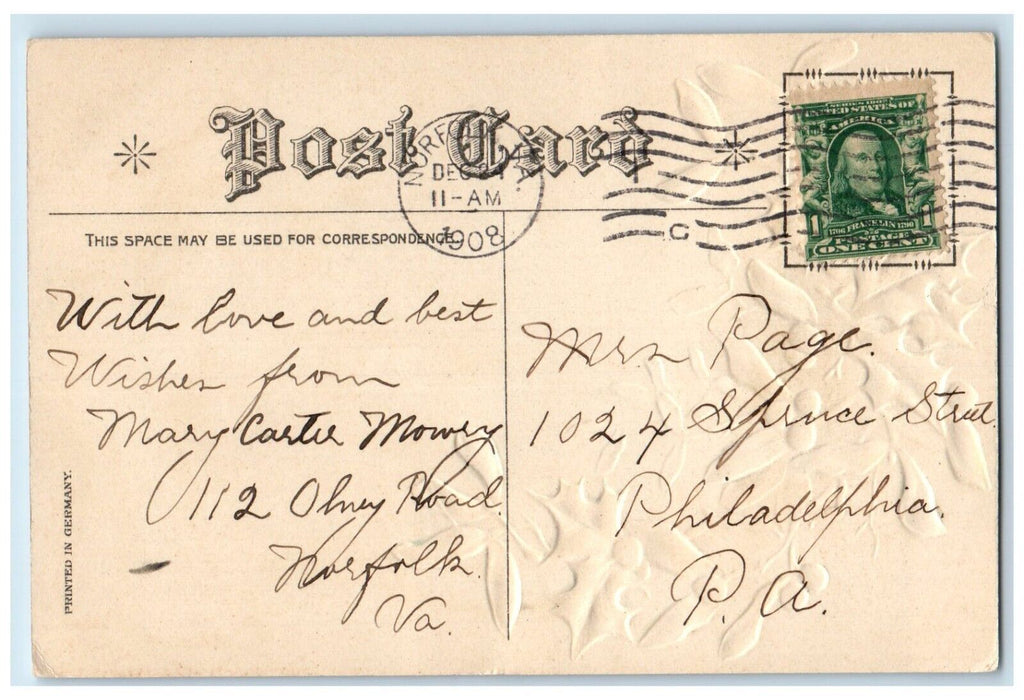 Post Card
NORFOLK, VA.
DEC
11-AM
1908
C
SERIES 1902
UNITED STATES OF
AMERICA
1 1
1706 FRANKLIN 1790
POSTAGE
ONE CENT
THIS SPACE MAY BE USED FOR CORRESPONDENCE.
With love and best
Wishes from
Mary Carter Mowry
112 Olney Road.
Norfolk.
Va.
Mrs. Page.
1024 Spruce Street.
Philadelphia.
P. A.
PRINTED IN GERMANY.